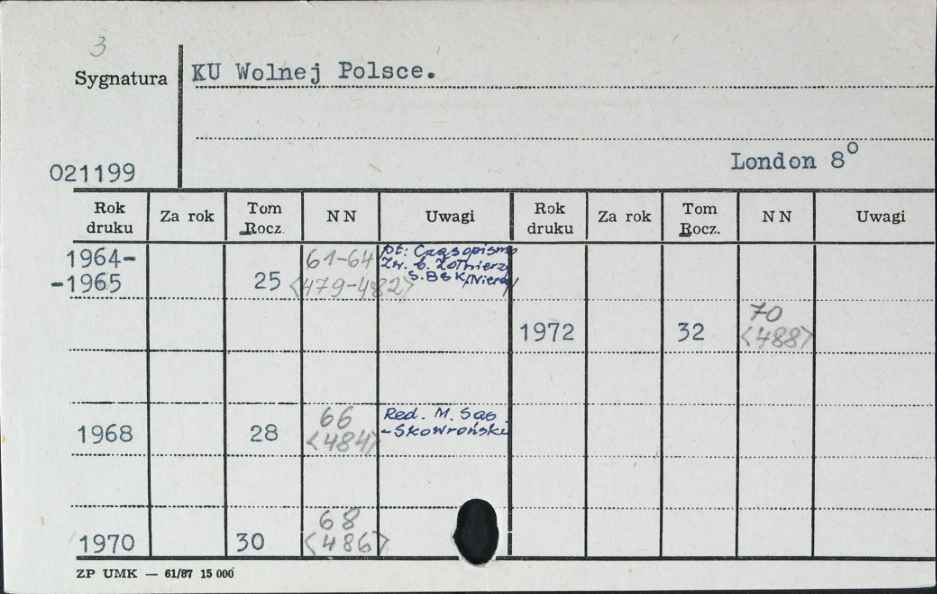 3
Sygnatura KU Wolnej Polsce.
London 8°
021199
Rok druku Za rok Tom Rocz. NN Uwagi Rok druku Za rok Tom Rocz. NN Uwagi
1964- 61-64 pt: Czasopismo
Zw. b. Żołnierzy
-1965 25 <479-482> S.BSK/Niereg/
1972 32 70
<488>
1968 28 66 Red. M. Sas
<484> -Skowroński
1970 30 68
<486>
ZP UMK — 61/87 15 000